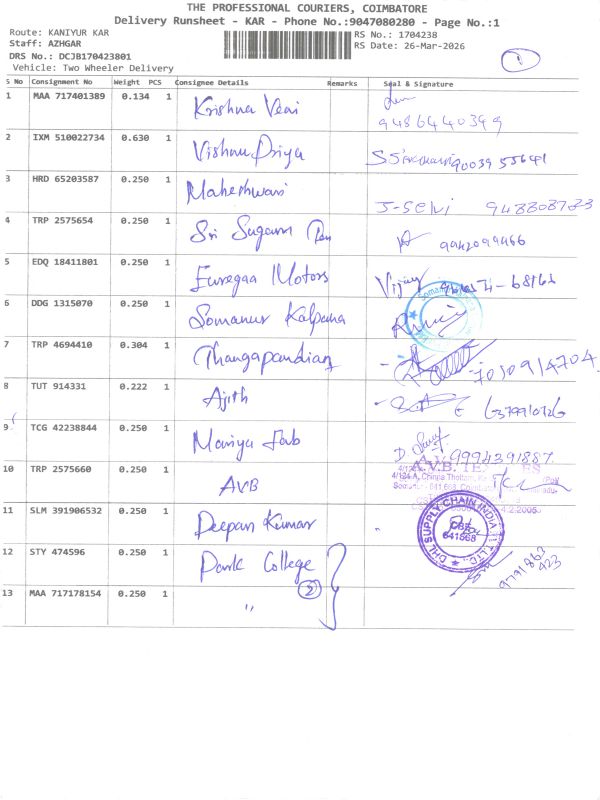 THE PROFESSIONAL COURIERS, COIMBATORE
Delivery Runsheet - KAR - Phone No.:9047080280 - Page No.:1
Route: KANIYUR KAR
Staff: AZHGAR
DRS No.: DCJB170423801
Vehicle: Two Wheeler Delivery
RS No.: 1704238
RS Date: 26-Mar-2026
1
S No Consignment No Weight PCS Consignee Details Remarks Seal & Signature
1 MAA 717401389 0.134 1 Krishna Veni 9486440399
2 IXM 510022734 0.630 1 Vishnu Priya 9003955641
3 HRD 65203587 0.250 1 Maheshwari J-Selvi
4 TRP 2575654 0.250 1 Sri Sugam 9942099466
5 EDQ 18411801 0.250 1 Euregaa Motors Vijay
6 DDG 1315070 0.250 1 Somanur Kalpana
7 TRP 4694410 0.304 1 Thangapandian 7030914704
8 TUT 914331 0.222 1 Ajith
9 TCG 42238844 0.250 1 Maniya Fab 9994391887
10 TRP 2575660 0.250 1 AVB
A.V.B. TEX
11 SLM 391906532 0.250 1 Deepan Kumar
DHL SUPPLY CHAIN INDIA
CBE
641668
12 STY 474596 0.250 1 Park College
2
9791863
923
13 MAA 717178154 0.250 1 "